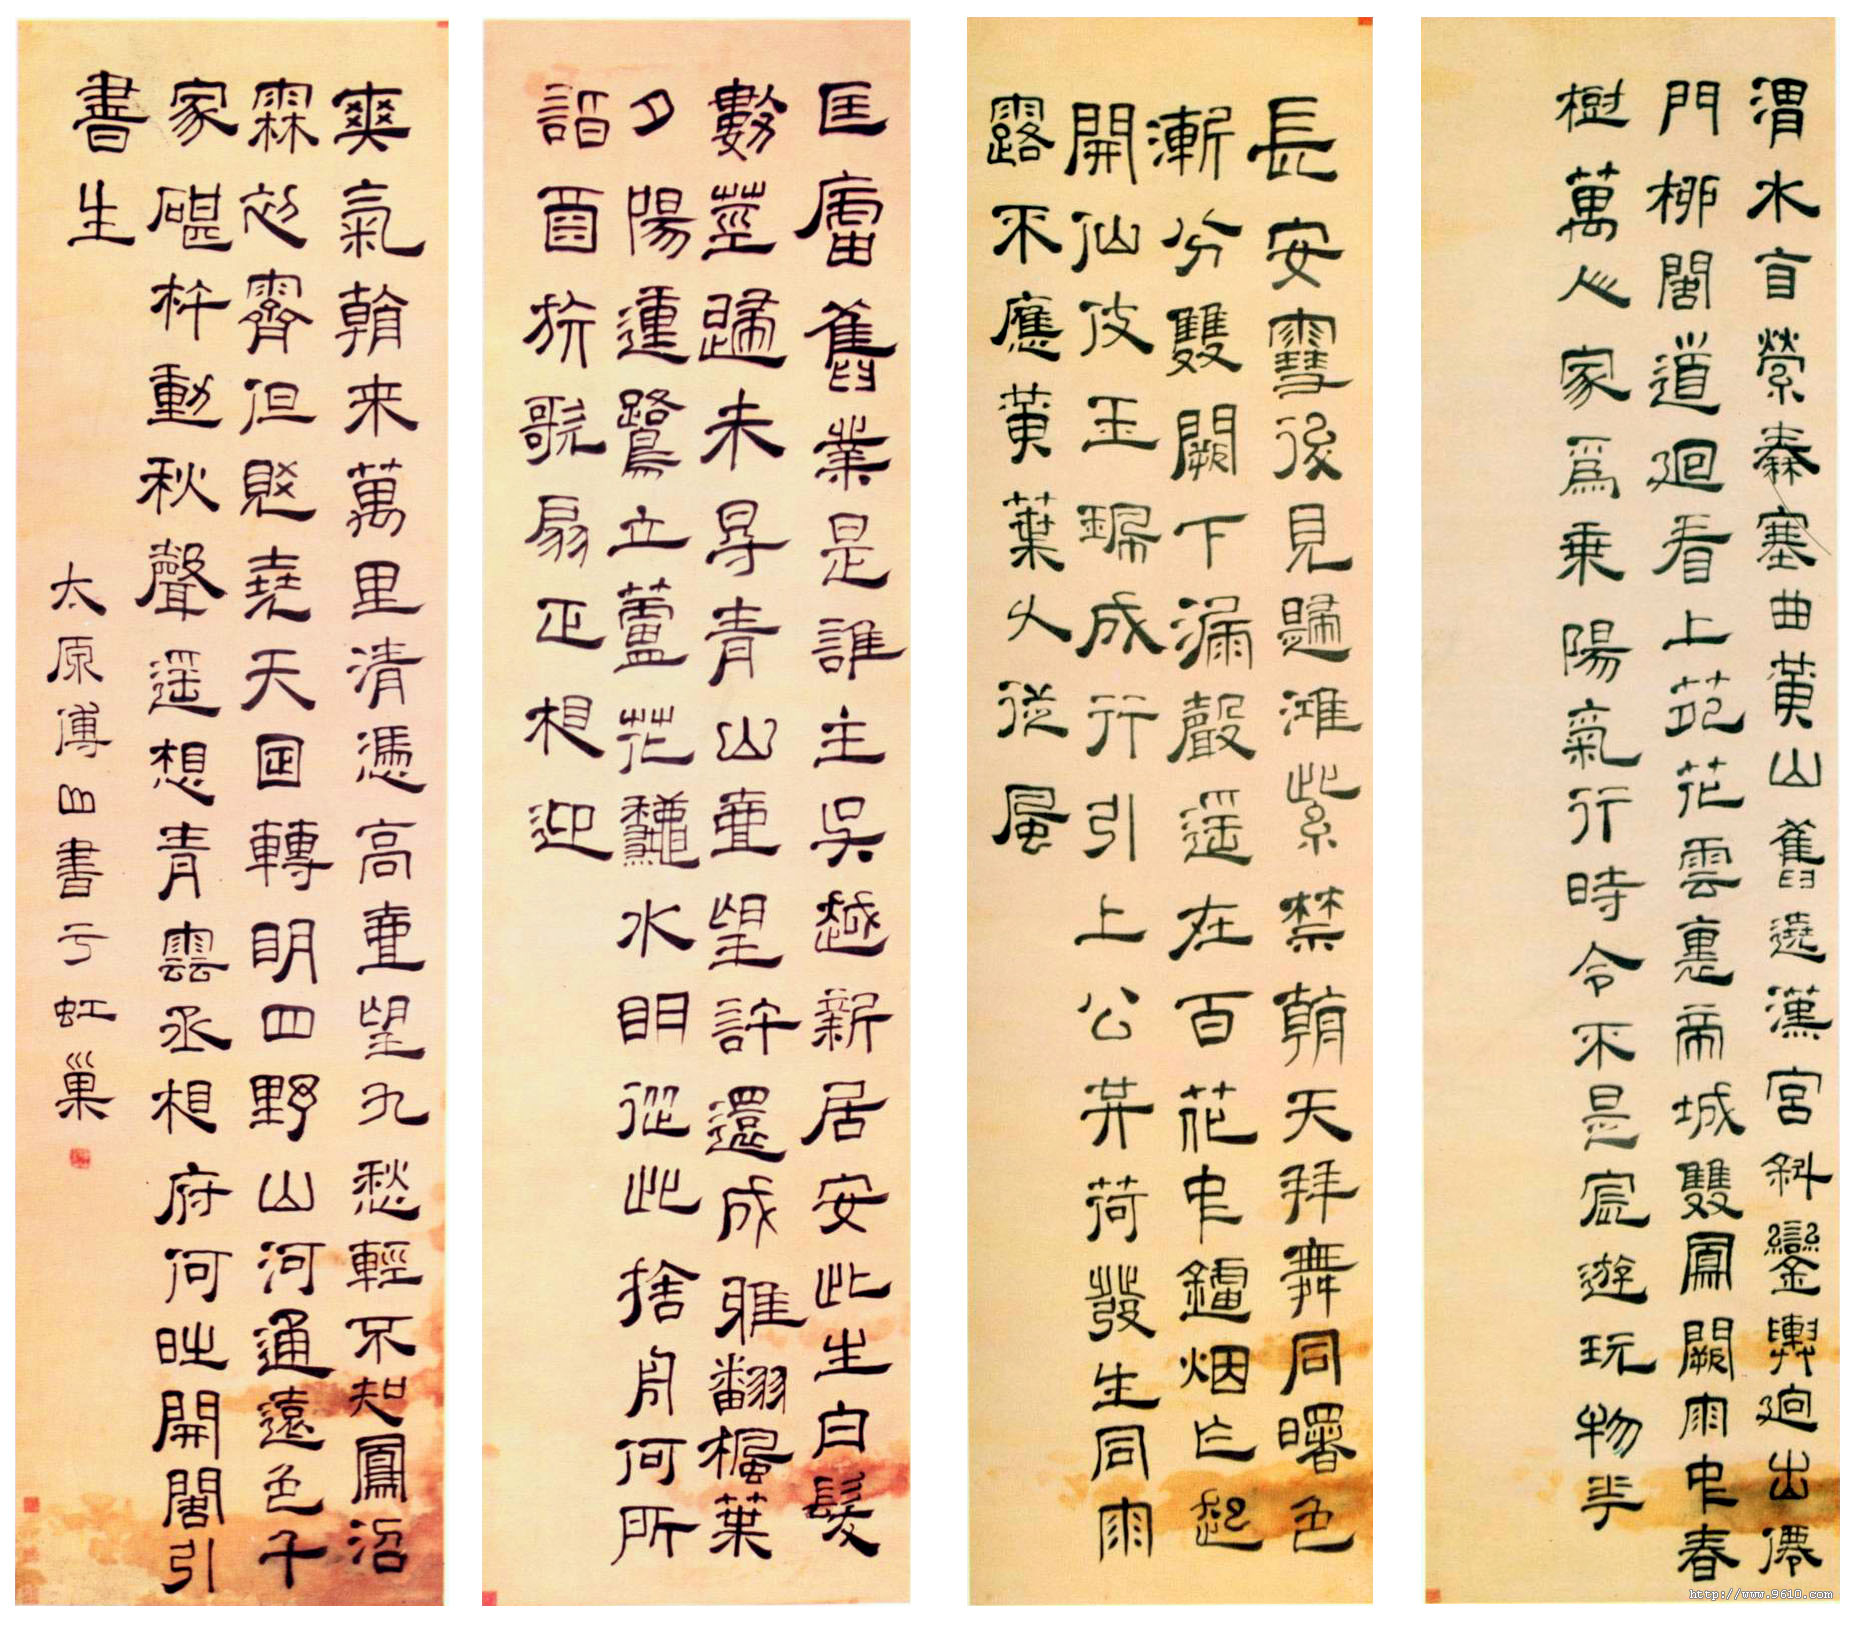 渭水自縈秦塞曲黃山舊遶漢宮斜鑾輿迥出僊
門柳閣道迴看上苑花雲裏帝城雙鳳闕雨中春
樹萬人家爲乘陽氣行時令不是宸遊玩物華
長安雪後見歸鴻紫禁朝天拜舞同曙色
漸分雙闕下漏聲遥在百花中鑪烟乍起
開仙仗玉珮成行引上公共荷發生同雨
露不應黃葉久從風
匡廬舊業是誰主吳越新居安此生白髮
數莖歸未得青山壹望許還成雅翻楓葉
夕陽動鷺立蘆花秋水明從此捨舟何所
詣酒旂歌扇正相迎
爽氣朝来萬里清憑高壹望九愁輕不知鳳沼
霖初霽但覺堯天日轉明四野山河通遠色千
家碪杵動秋聲遥想青雲丞相府何時開閣引
書生
太原傅山書于虹巢
http://www.9610.com